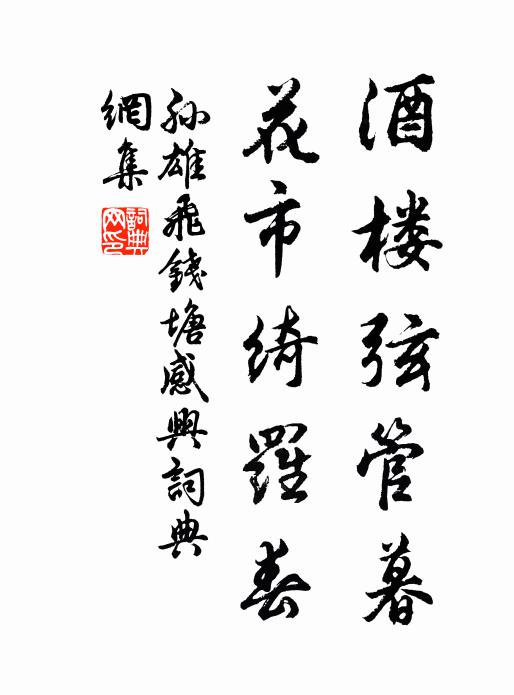 酒楼弦管暮
花市绮羅春
孙雄飛錢塘感興詞典
網集
詞典网印